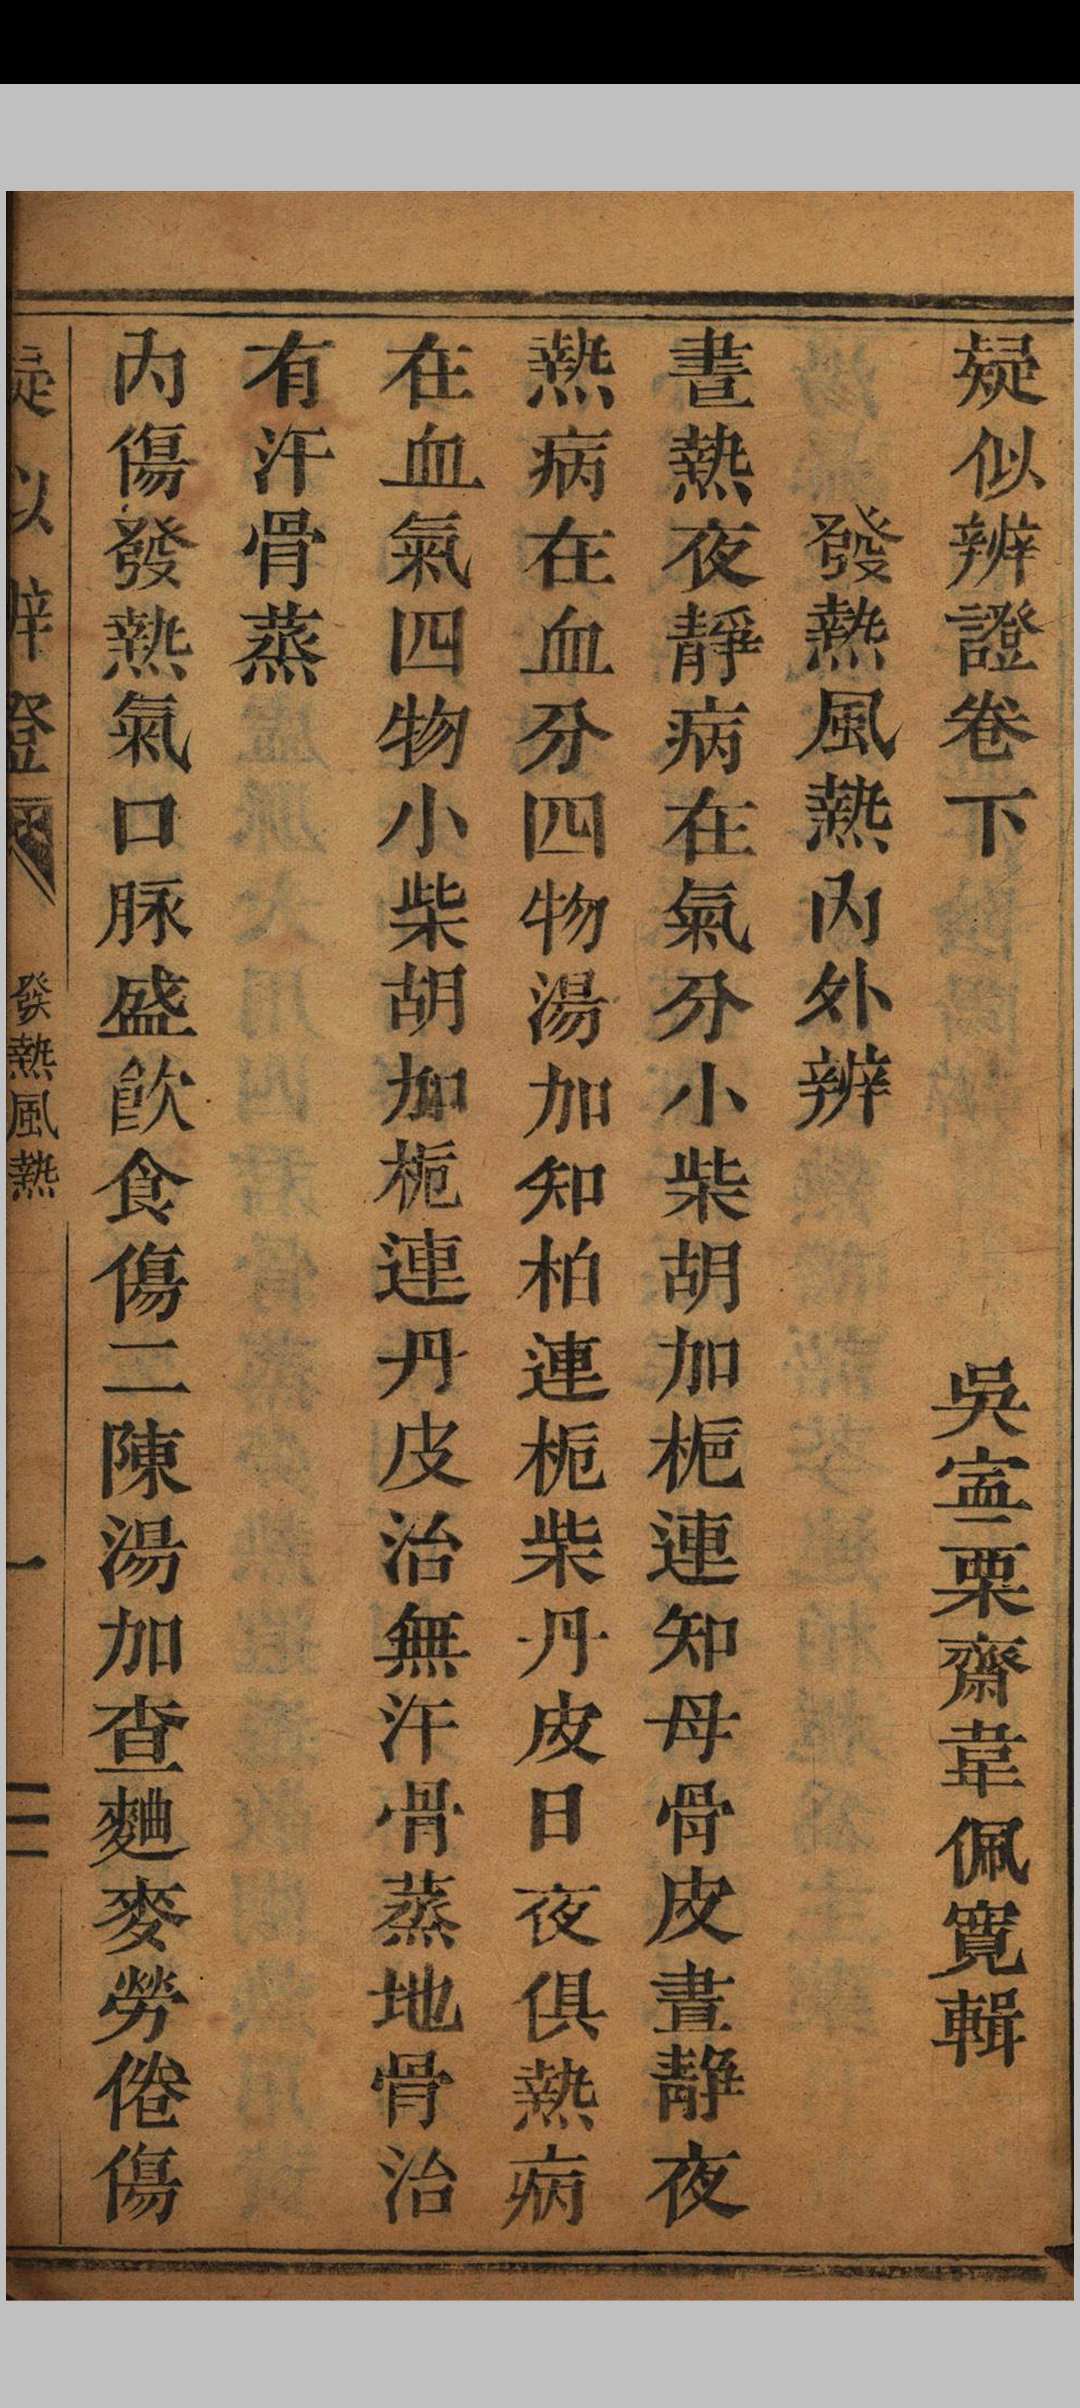 疑似辨證卷下 吳寍栗齋韋佩寬輯
發熱風熱內外辨
晝熱夜靜病在氣分小柴胡加梔連知母骨皮晝靜夜
熱病在血分四物湯加知柏連梔柴丹皮日夜俱熱病
在血氣四物小柴胡加梔連丹皮治無汗骨蒸地骨治
有汗骨蒸
內傷發熱氣口脉盛飲食傷二陳湯加查麯麥勞倦傷
疑似辨證 發熱風熱 一